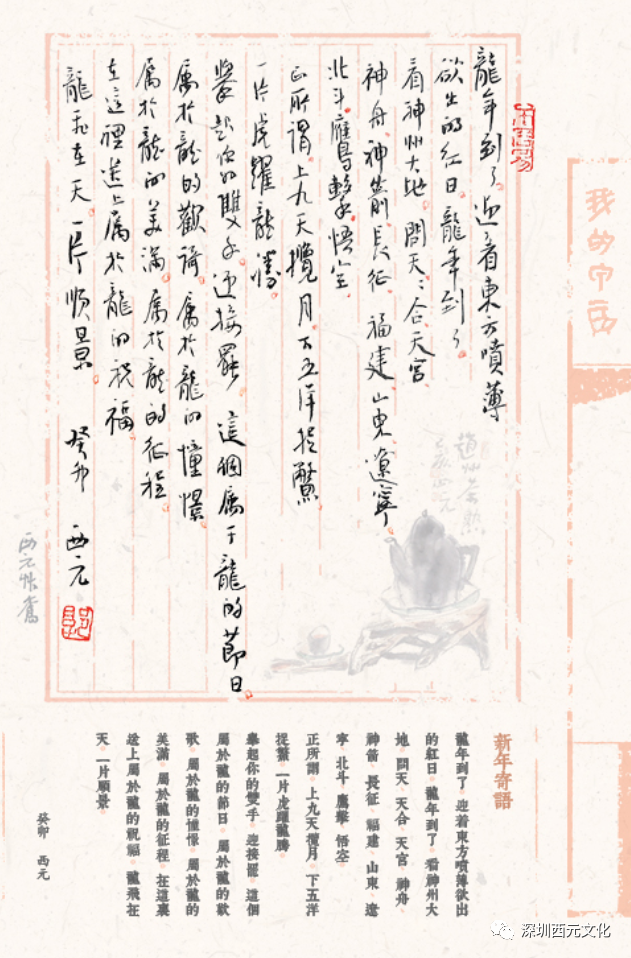 我的中
龍年到了迎着東方噴薄
欲出的紅日 龍年到了
看神州大地 問天〻合天宮
神舟神箭長征 福建山東遼寧
北斗鷹擊悟空
正所謂上九天攬月下五洋捉鱉
一片虎躍龍騰
舉起你的雙手迎接罷 這個屬于龍的節日
屬於龍的歡歌 屬於龍的憧憬
屬於龍的美滿 屬於龍的征程
在這裡送上屬於龍的祝福
龍飛在天一片順景 癸卯 西元
趙州茶熱
西元
新年寄語
龍年到了 迎着東方噴薄欲出
的紅日 龍年到了 看神州大
地 問天 天合 天宮 神舟
神箭 長征 福建 山東 遼
寧 北斗 鷹擊 悟空
正所謂 上九天攬月 下五洋
捉鱉 一片虎躍龍騰
舉起你的雙手 迎接罷 這個
屬於龍的節日 屬於龍的歡
歌 屬於龍的憧憬 屬於龍的
美滿 屬於龍的征程 在這裏
送上屬於龍的祝福 龍飛在
天 一片順景
癸卯 西元
深圳西元文化